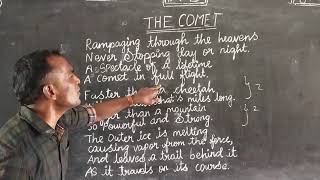 THE COMET
Rampaging through the heavens
Never Stopping day or night.
A Spectacle of a lifetime
A comet in full flight.
Faster than a cheetah
that's miles long.
than a mountain
So Powerful and Strong.
The Outer ice is melting
causing vapor from the force,
And leaves a trail behind it
As it travels on its course.
} 2
} 2